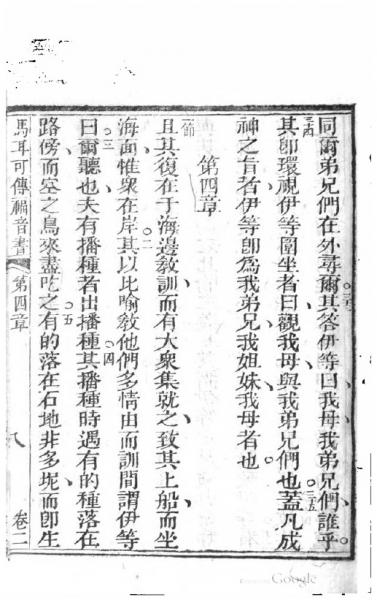 同爾弟兄們在外尋爾其答伊等曰我母我弟兄們誰乎
其卽環視伊等圍坐者曰觀我母與我弟兄們也蓋凡成
神之旨者伊等卽為我弟兄我姐妹我母者也
第四章
且其復在于海邊敎訓而有大衆集就之致其上船而坐
海面惟衆在岸其以比喻敎他們多情由而訓間謂伊等
曰爾聽也夫有播種者出播種其播種時遇有的種落在
路傍而空之鳥來盡吃之有的落在石地非多坭而卽生
馬耳可傳福音書 第四章 八 卷二
Google